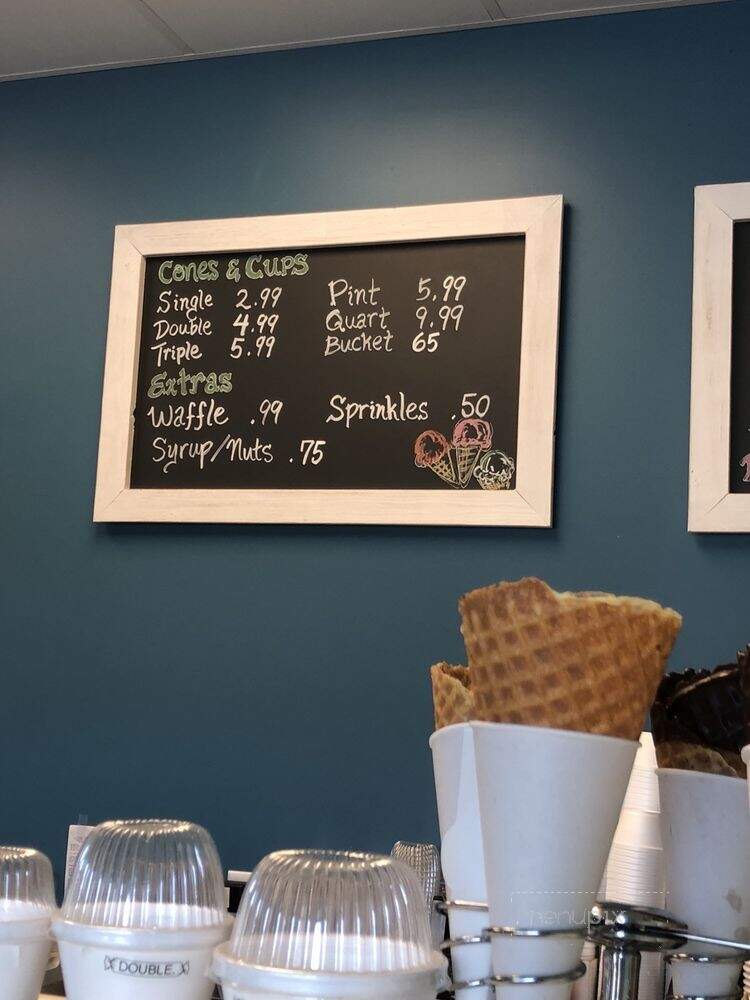 Cones & Cups
Single 2.99
Double 4.99
Triple 5.99
Pint 5.99
Quart 9.99
Bucket 65
Extras
Waffle .99
Sprinkles .50
Syrup/Nuts .75
DOUBLE
menupix